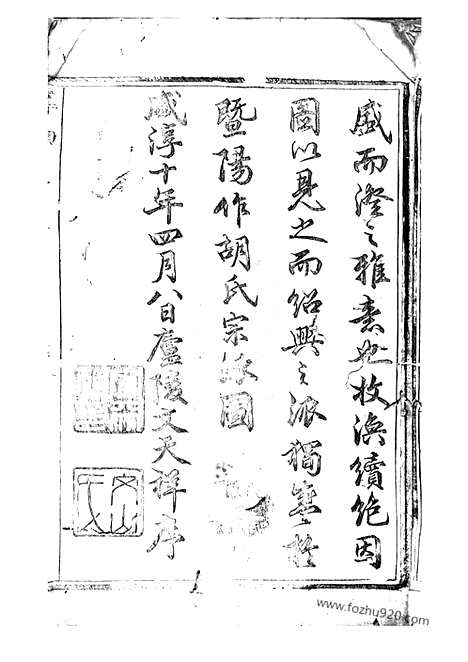 而澄之雅意也收渙續絶因
圖以見之而紹興之派獨於
暨陽作胡氏宗圖
咸淳十年四月八日廬陵文天祥序
www.fozhu920.com